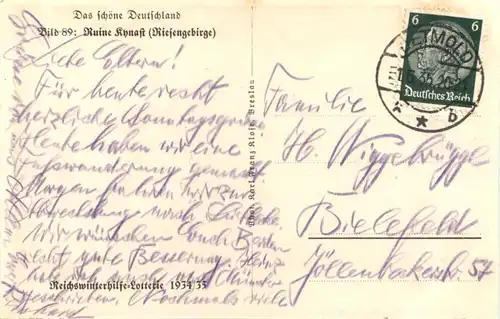 Das schöne Deutschland
Bild 89: Ruine Kynast (Riesengebirge)
Liebe Eltern!
Für heute recht
herzliche Sonntagsgrüße
Heute haben wir eine
Fußwanderung gemacht
Morgen fahren wir zur
Abwechslung nach
Wir wünschen Euch
recht gute Besserung.
Nochmals viele
Reichswinterhilfe-Lotterie 1934/35
Phot. Karl Franz Klose, Breslau
6 6
DETMOLD
Deutsches Reich
* * b
Familie
H. Wiggebrügge
Bielefeld
Jöllenbeckerstr. 57